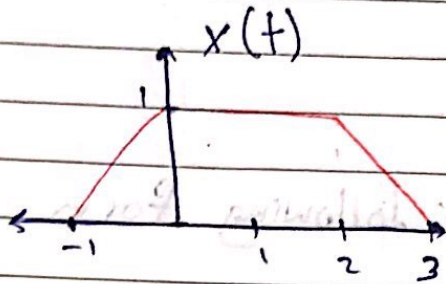 x(t)
1
-1 1 2 3